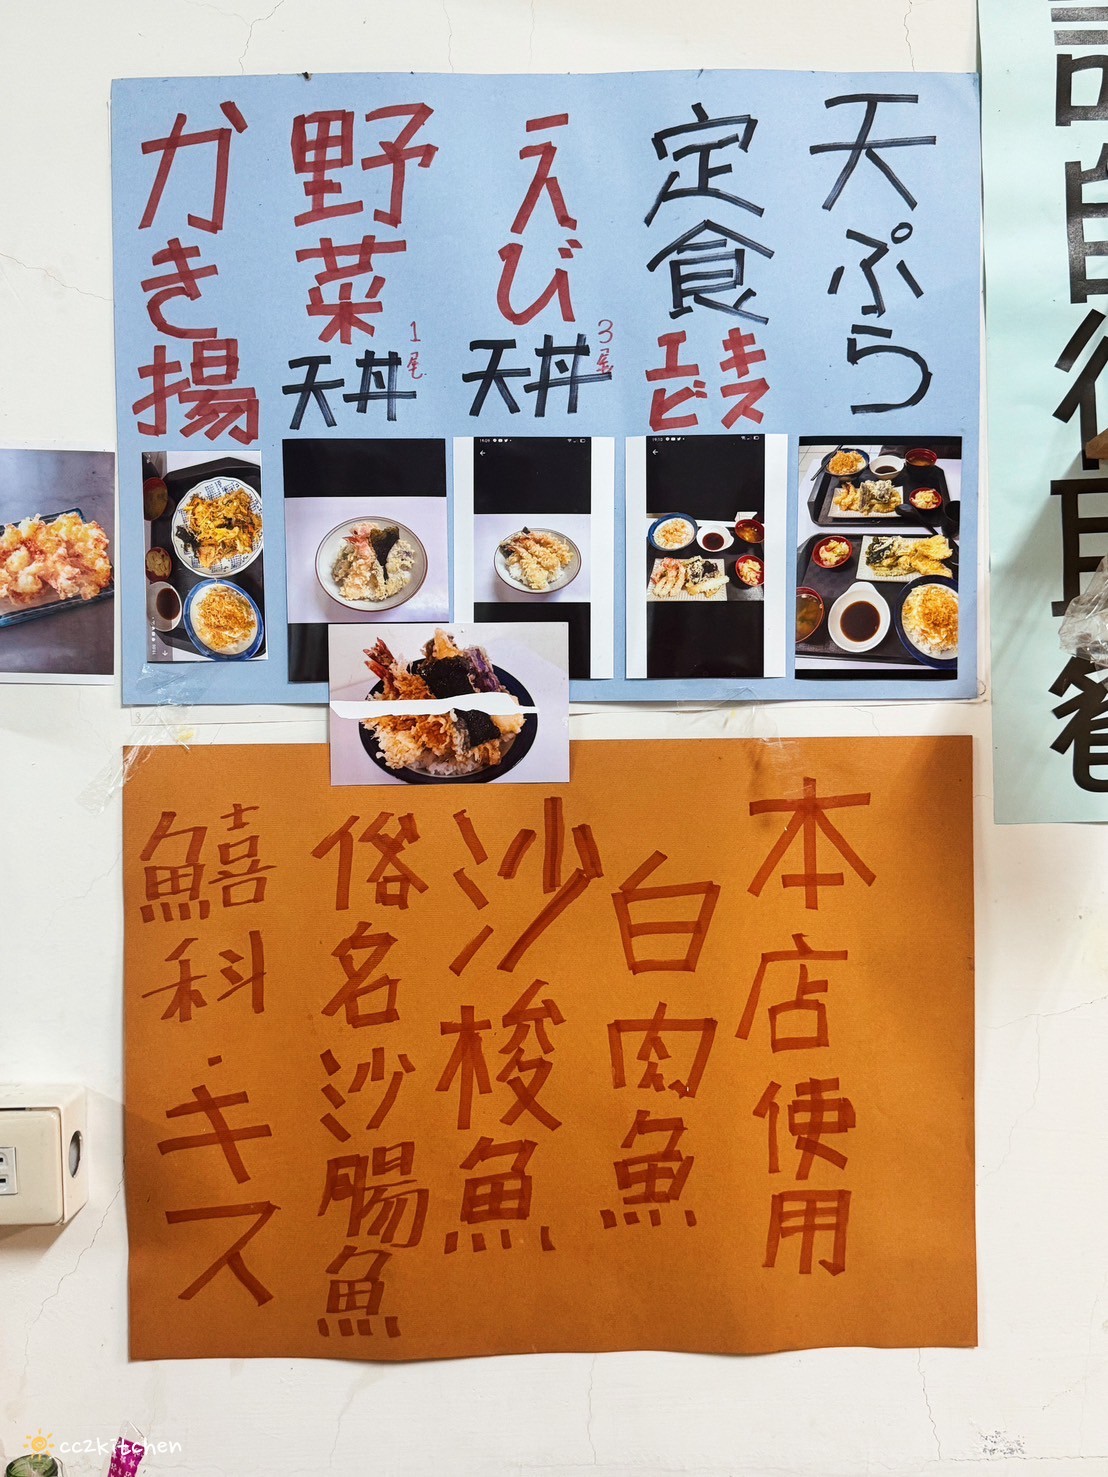 天ぷら
定食
キス
エビ
えび
天丼
3尾
野菜
天丼
1尾
かき揚
本店使用
白肉魚
沙梭魚
俗名沙腸魚
鱚科・キス
cc2kitchen